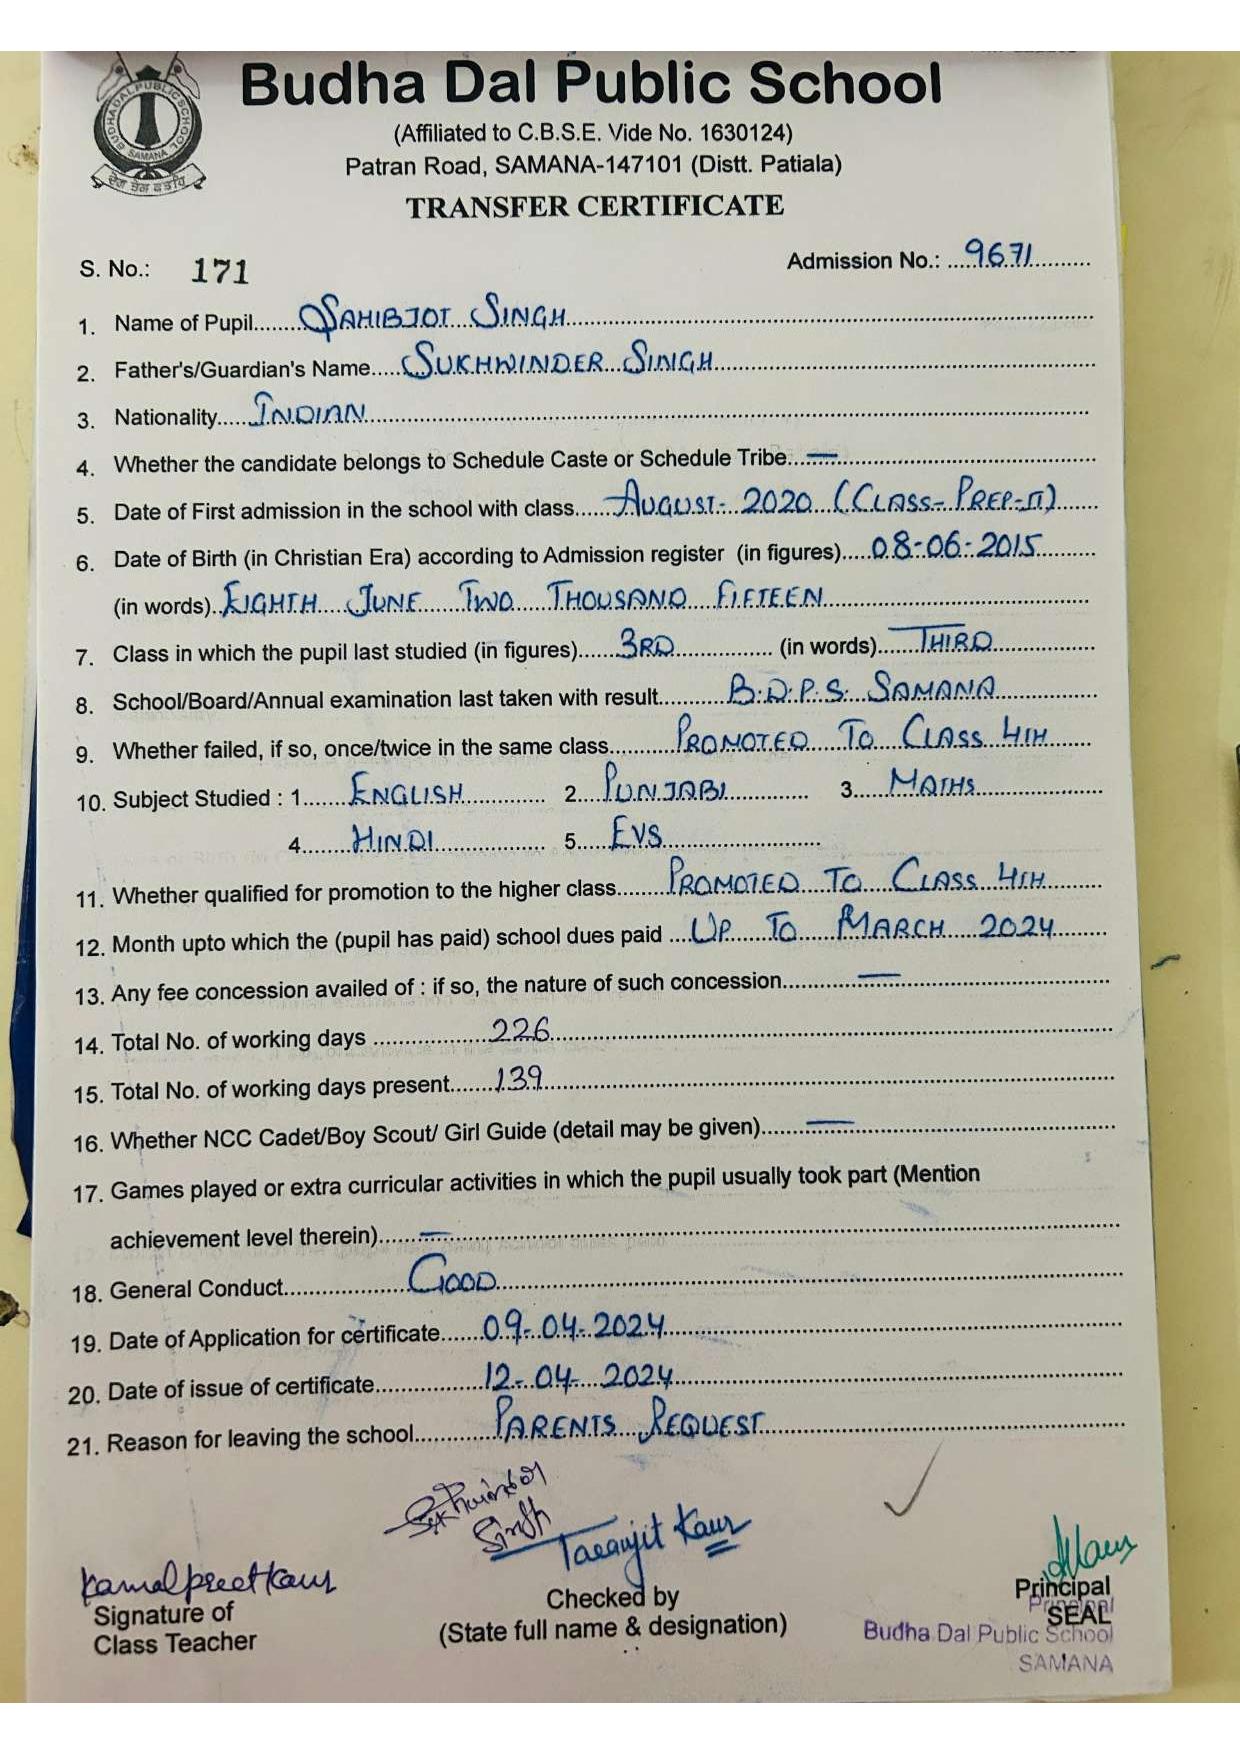 BUDHA DAL PUBLIC SCHOOL
SAMANA
ਦੇਗ ਤੇਗ ਫਤਹਿ
Budha Dal Public School
(Affiliated to C.B.S.E. Vide No. 1630124)
Patran Road, SAMANA-147101 (Distt. Patiala)
TRANSFER CERTIFICATE
S. No.: 171 Admission No.: 9671
1. Name of Pupil SAHIBJOT SINGH
2. Father's/Guardian's Name SUKHWINDER SINGH
3. Nationality INDIAN
4. Whether the candidate belongs to Schedule Caste or Schedule Tribe —
5. Date of First admission in the school with class AUGUST- 2020 (CLASS-PREP-II)
6. Date of Birth (in Christian Era) according to Admission register (in figures) 08-06-2015
(in words) EIGHTH JUNE TWO THOUSAND FIFTEEN
7. Class in which the pupil last studied (in figures) 3RD (in words) THIRD
8. School/Board/Annual examination last taken with result B.D.P.S. SAMANA
9. Whether failed, if so, once/twice in the same class PROMOTED TO CLASS 4TH
10. Subject Studied : 1. ENGLISH 2. PUNJABI 3. MATHS
4. HINDI 5. EVS
11. Whether qualified for promotion to the higher class PROMOTED TO CLASS 4TH
12. Month upto which the (pupil has paid) school dues paid UP TO MARCH 2024
13. Any fee concession availed of : if so, the nature of such concession —
14. Total No. of working days 226
15. Total No. of working days present 139
16. Whether NCC Cadet/Boy Scout/ Girl Guide (detail may be given) —
17. Games played or extra curricular activities in which the pupil usually took part (Mention
achievement level therein) —
18. General Conduct GOOD
19. Date of Application for certificate 09-04-2024
20. Date of issue of certificate 12-04-2024
21. Reason for leaving the school PARENTS REQUEST
Sukhwinder
Singh
Taranjit Kaur
Kamalpreet Kaur
Signature of
Class Teacher
Checked by
(State full name & designation)
Principal
Principal
SEAL
Budha Dal Public School
SAMANA